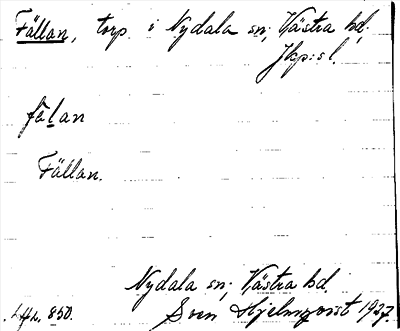 Fällan, torp i Nydala sn; Västra hd;
Jkp:s l.
fälan
Fällan.
Nydala sn; Västra hd.
Sven Hjelmqvist 1927.